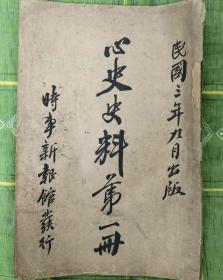 民國三年九月出版
心史史料第一冊
時事新報館發行